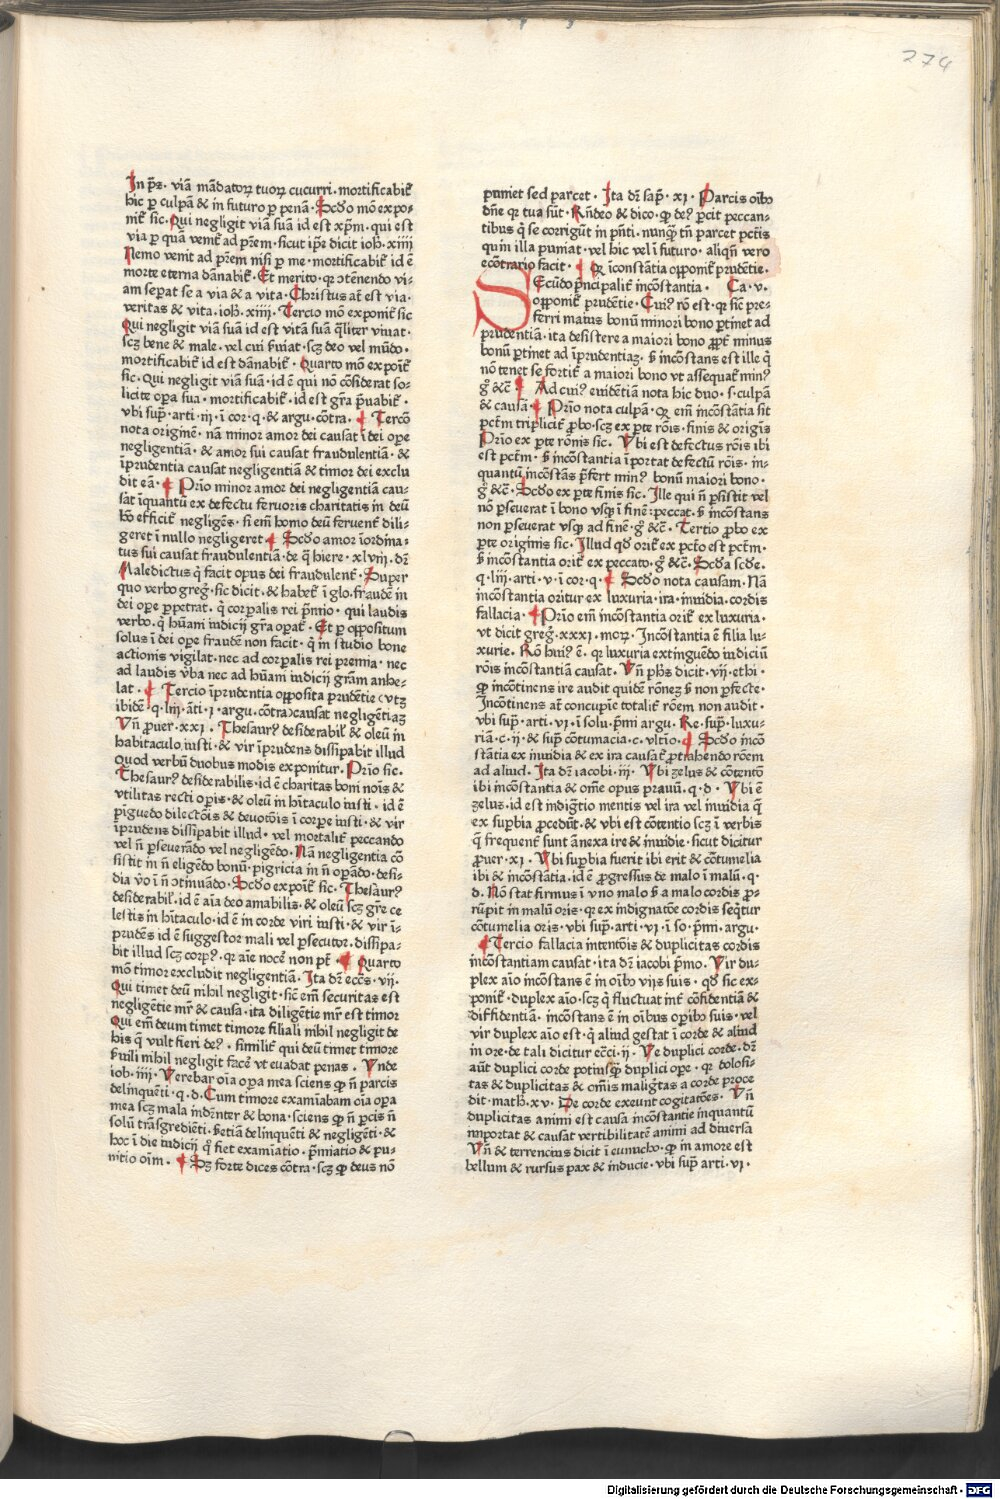 274
In p̄s. viā mādatoꝝ tuoꝝ cucurri. mortificabit̄
hic ꝑ culpā & in futuro ꝑ penā. Scd̄o mō expo-
nit̄ sic. Qui negligit viā suā id est xp̄m. qui est
via ꝑ quā venit̄ ad pr̄em. sicut ip̄e dicit ioh̄. xiiii
Nemo venit ad pr̄em nisi ꝑ me. mortificabit̄ id ē
morte eterna dānabit̄. Et merito. qꝛ ↄtēnendo vi-
am seꝑat se a via & a vita. Christus at̄ est via.
veritas & vita. ioh̄. xiiii. Tercio mō exponit̄ sic
Qui negligit viā suā id est vitā suā q̄liter viuat.
scꝫ bene & male. vel cui ẜuiat. scꝫ deo vel mūdo.
mortificabit̄ id est dānabit̄. Quarto mō expoīt̄
sic. Qui negligit viā suā. id ē qui nō cōsiderat so-
licite oꝑa sua. mortificabit̄. id est gr̄a pͥuabit̄.
vbi sup̄. arti. iii. ī cor. q. & argu. cōtra. Tercō
nota originē. nā minor amor dei causat ī dei oꝑe
negligentiā. & amor sui causat fraudulentiā. &
īprudentia causat negligentiā & timor dei exclu
dit eā. Prīo minor amor dei negligentiā cau-
sat īquantū ex defectu feruoris charitatis in deū
hō efficit̄ negligēs. si em̄ homo deū feruent̄ dili-
geret ī nullo negligeret. Scd̄o amor iordina-
tus sui causat fraudulentiā. de q̄ hiere. xlviii. dr̄
Maledictus q̄ facit opus dei fraudulent̄. Super
quo verbo greḡ. sic dicit. & habet̄ ī glo. fraudē in
dei oꝑe ꝑpetrat. q̄ corꝑalis rei pͥmio. qui laudis
verbo. q̄ hūani iudicij gr̄a oꝑat̄. Et ꝑ oppositum
solus ī dei oꝑe fraudē non facit. q̄ in studio bone
actionis vigilat. nec ad corꝑalis rei premia. nec
ad laudis v̄ba nec ad hūam iudicij gr̄am anhe-
lat. Tercio īprudentia opposita prudētie (vtꝫ
ibidē. q. liii. āti. i. argu. cōtra) causat negligētiaꝫ
Vn̄ ꝓuer. xxi. Thesaurꝰ desiderabil̄ & oleū in
habitaculo iusti. & vir īprudens dissipabit illud
Quod verbū duobus modis exponitur. Prīo sic.
Thesaurꝰ desiderabilis. id ē charitas boni nois &
vtilitas recti oꝑis. & oleū in h̄itaculo iusti. id ē
pīguedo dilectōis & deuotōis ī corꝑe iusti. & vir
īprudens dissipabit illud. vel mortalit̄ peccando
vel n̄ ꝑseuerādo vel negligēdo. Nā negligentia cō
sistit in n̄ eligēdo bonū. pigricia in n̄ oꝑādo. desi-
dia v̄o ī n̄ ↄtinuādo. Scd̄o expoīt̄ sic. Thesaurꝰ
desiderabil̄. id ē aīa deo amabilis. & oleū scꝫ gr̄e ce
lestis in h̄itaculo. id ē in corde viri iusti. & vir ī-
prudēs id ē suggestor mali vel ꝑsecutor. dissipa-
bit illud scꝫ corpꝰ. qꝛ aīe nocē non pt̄. Quarto
mō timor excludit negligentiā. Ita dr̄ eccs̄. vij.
Qui timet deū nihil negligit. sic̄ em̄ securitas est
negligētie mr̄ & causa. ita diligētie mr̄ est timor
Qui em̄ deum timet timore filiali nihil negligit de
his q̄ vult fieri deꝰ. similit̄ qui deū timet timore
ẜuili nihil negligit facē vt euadat penas. Vnde
iob. iiii. Verebar oīa oꝑa mea sciens ꝙ n̄ parcis
delinquēti. q. d. Cum timore examīabam oīa oꝑa
mea scꝫ mala indr̄nter & bona. sciens ꝙ n̄ ꝑcis n̄
solū trāsgrediēti. ẜetiā delinquēti & negligēti. &
hoc ī die iudicij qn̄ fiet examīatio. pͥmiatio & pu-
nitio oīm. Sꝫ forte dices cōtra. scꝫ ꝙ deus nō
puniet sed parcet. Ita dr̄ sap̄. xi. Parcis oībꝰ
dn̄e qꝛ tua sūt. Rn̄deo & dico. ꝙ deꝰ ꝑcit peccan-
tibus q̄ se corrigūt in pn̄ti. nunq̄ tn̄ parcet pctīs
quin illa puniat. vel hic vel ī futuro. aliqn̄ vero
ecōtrario facit. Qꝙ īconstātia opponit̄ prudētie.
SEcūdo pͥncipalit̄ incōstantia. Ca. v.
opponit̄ prudētie. Cuiꝰ rō est. qꝛ sic̄ pre-
ferri maius bonū minori bono ꝑtinet ad
prudentiā. ita desistere a maiori bono ꝓpt̄ minus
bonū ꝑtinet ad īprudentiaꝫ. ẜ incōstans est ille q̄
nō tenet se fortit̄ a maiori bono vt assequat̄ minꝰ
gͦ &c̄. Ad cuiꝰ euidētiā nota hic duo. s. culpā
& causā. Prīo nota culpā. Qꝙ em̄ incōstātia sit
pctm̄ triplicit̄ ꝓbo. scꝫ ex ꝑte rōis. finis & origīs
Prīo ex ꝑte rōnis sic. Vbi est defectus rōis ibi
est pctm̄. ẜ incōstantia īportat defectū rōis. in-
quantū incōstās pͥfert minꝰ bonū maiori bono.
gͦ &c̄. Scd̄o ex ꝑte finis sic. Ille qui n̄ ꝑsistit vel
nō ꝑseuerat ī bono vsqꝫ ī finē. peccat. ẜ incōstans
non ꝑseuerat vsqꝫ ad finē. gͦ &c̄. Tertio ꝓbo ex
ꝑte originis sic. Illud qd̄ orit̄ ex pctō est pctm̄.
ẜ incōstantia orit̄ ex peccato. gͦ &c̄. Scd̄a scd̄e.
q. liii. arti. v. ī cor. q. Scd̄o nota causam. Nā
incōstantia oritur ex luxuria. ira. inuidia. cordis
fallacia. Prīo em̄ incōstantia orit̄ ex luxuria.
vt dicit greḡ. xxxi. moꝝ. Incōstantia ē filia lu-
xurie. Rō huiꝰ ē. qꝛ luxuria extinguēdo iudiciū
rōis incōstantiā causat. Vn̄ ph̄s dicit. vij. ethi.
ꝙ incōtinens ire audit quidē rōneꝫ ẜ non ꝑfecte.
Incōtinens at̄ concupīe totalit̄ rōem non audit.
vbi sup̄. arti. vi. ī solu. pͥmi argu. Re. sup̄. luxu-
riā. c. ij. & sup̄ cōtumacia. c. vltīo. Scd̄o incō
stātia ex inuidia & ex ira causat̄ ꝓtrahendo rōem
ad aliud. Ita dr̄ iacobi. iii. Vbi zelus & cōtentō
ibi incōstantia & om̄e opus prauū. q. d. Vbi ē
zelus. id est indigtīo mentis vel ira vel inuidia q̄
ex suꝑbia ꝓcedūt. & vbi est cōtentio scꝫ ī verbis
q̄ frequent̄ sunt ānexa ire & inuidie. sicut dicitur
ꝓuer. xi. Vbi suꝑbia fuerit ibi erit & cōtumelia
ibi & incōstātia. id ē ꝓgressus de malo ī malū. q.
d. Nō stat firmus ī vno malo ẜ a malo cordis ꝓ-
rūpit in malū oris. qꝛ ex indignatōe cordis seq̄tur
cōtumelia oris. vbi sup̄. arti. vi. ī so. pͥmi. argu.
Tercio fallacia intentōis & duplicitas cordis
incōstantiam causat. ita dr̄ iacobi pͥmo. Vir du-
plex aīo incōstans ē in oībꝰ viis suis. qd̄ sic ex-
ponit̄. duplex aīo. scꝫ q̄ fluctuat int̄ cōfidentiā &
diffidentiā. incōstans ē in oībus oꝑibꝰ suis. vel
vir duplex aīo est. q̄ aliud gestat ī corde & aliud
in ore. de tali dicitur ecc̄i. ij. Ve duplici corde. dr̄
aūt duplici corde potiusq̄ꝫ duplici oꝑe. qꝛ dolosi-
tas & duplicitas & om̄is malig̃tas a corde proce
dit. math̄. xv. De corde exeunt cogitatōes. Vn̄
duplicitas animi est causa incōstantie inquantū
importat & causat vertibilitatē animi ad diuersa
Vn̄ & terrencius dicit ī eunucho. ꝙ in amore est
bellum & rursus pax & inducie. vbi sup̄ arti. vi.
Digitalisierung gefördert durch die Deutsche Forschungsgemeinschaft - DFG